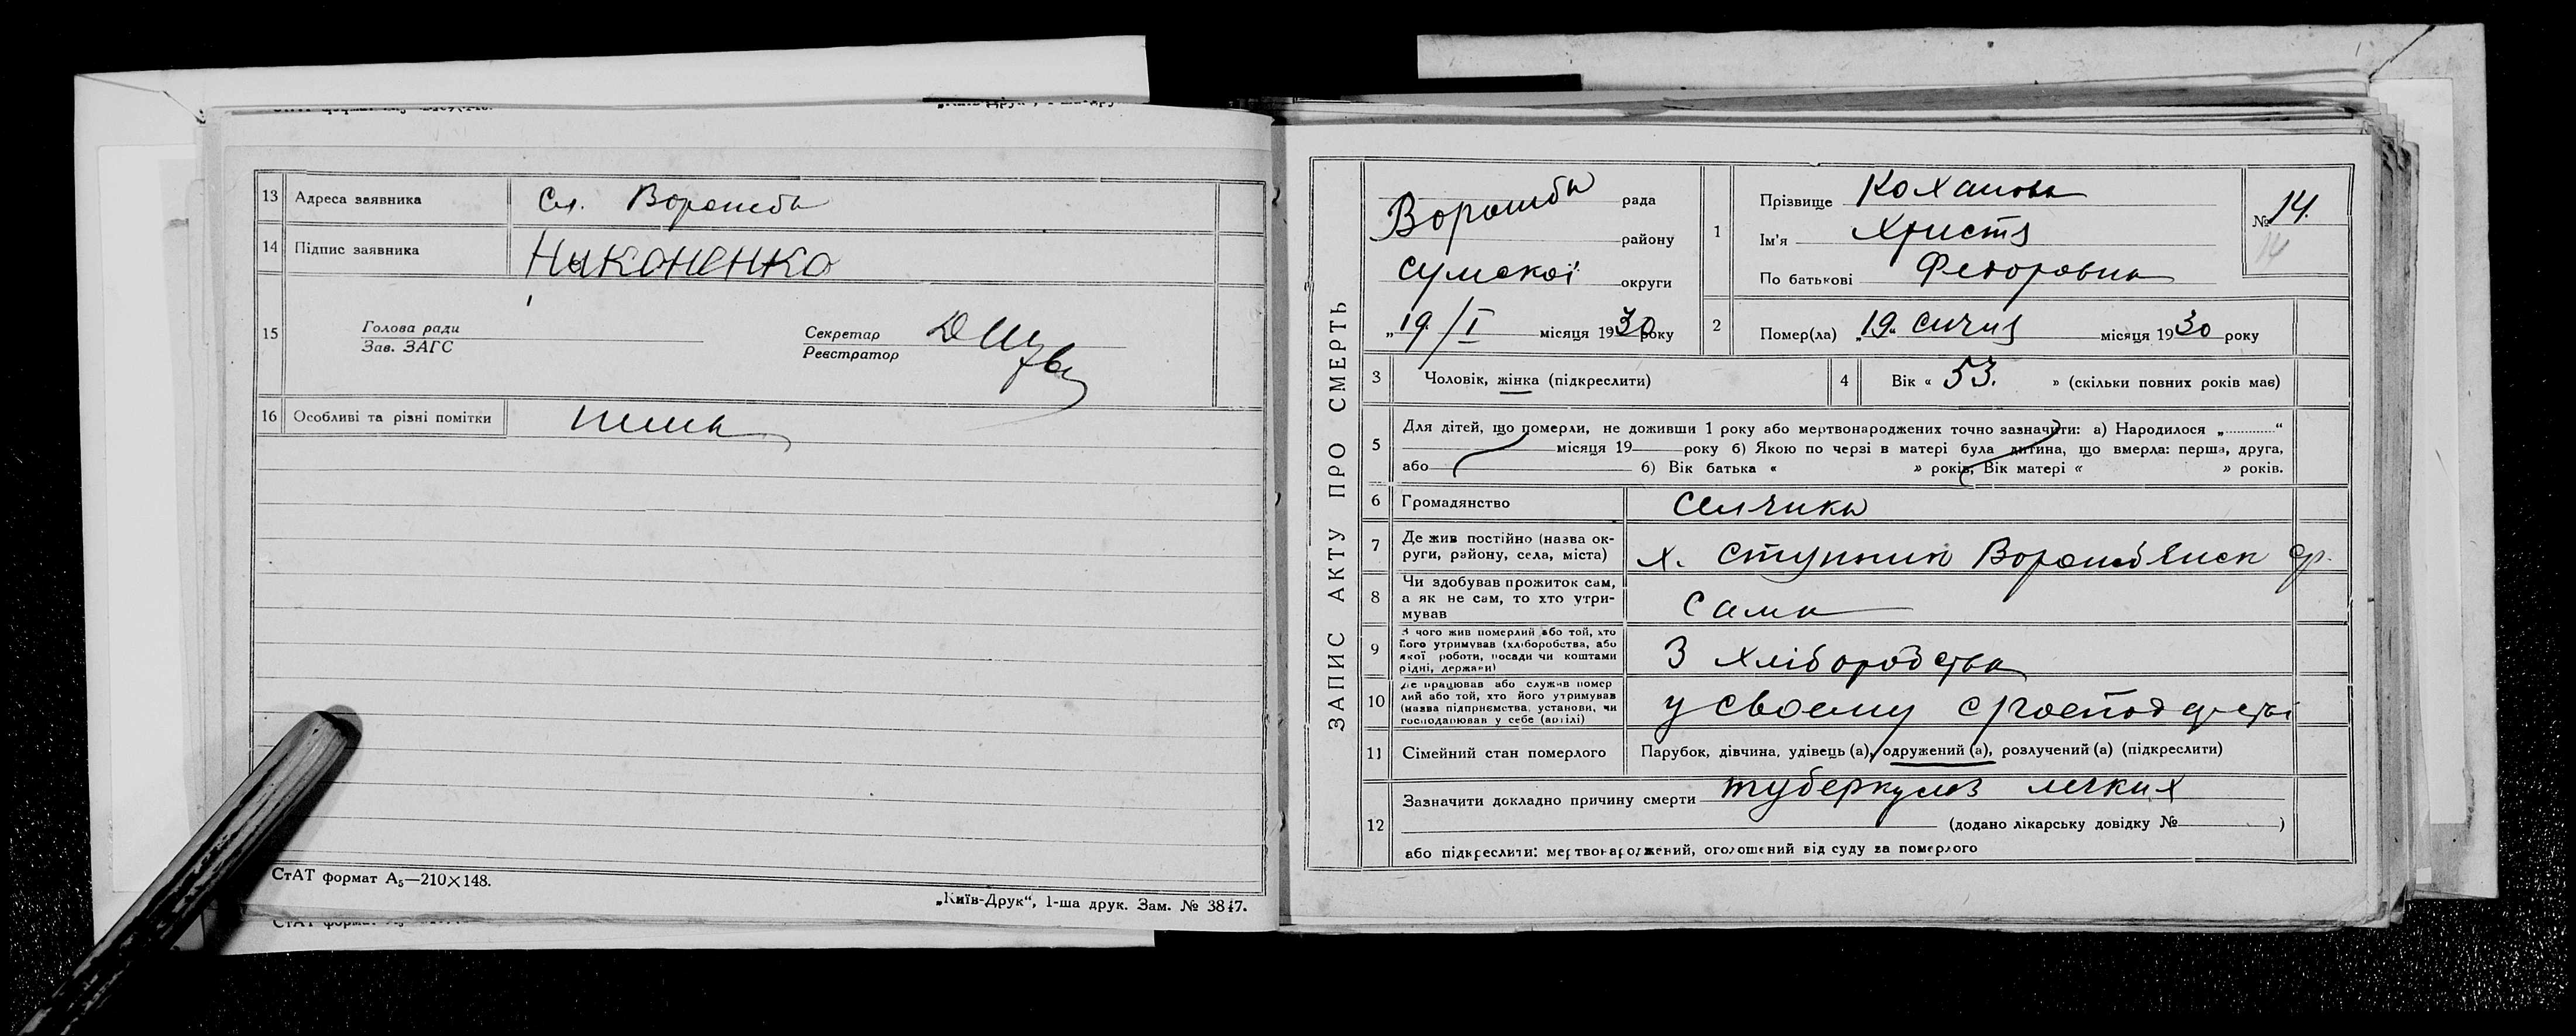 13 Адреса заявника Сл. Ворожба
14 Підпис заявника Никоненко
15 Голова ради
Зав. ЗАГС
Секретар
Реєстратор
16 Особливі та різні помітки нема
СтАТ формат А₅—210×148.
„Київ-Друк“, 1-ша друк. Зам. № 3847.
ЗАПИС АКТУ ПРО СМЕРТЬ
Ворожба рада
району
Сумскої округи
„19“/I місяця 1930 року
1 Прізвище Коханова
Ім'я Христя
По батькові Федоровна
№ 14.
14
2 Помер(ла) „19“ Січня місяця 1930 року
3 Чоловік, жінка (підкреслити)
4 Вік « 53. » (скільки повних років має)
5 Для дітей, що померли, не доживши 1 року або мертвонароджених точно зазначити: а) Народилося „............“
місяця 19 року б) Якою по черзі в матері була дитина, що вмерла: перша, друга,
або б) Вік батька « » років, Вік матері « » років.
6 Громадянство Селянка
7 Де жив постійно (назва ок-
руги, району, села, міста) х. Ступкин Ворожбянск ср.
8 Чи здобував прожиток сам,
а як не сам, то хто утри-
мував
Сама
9 З чого жив померлий або той, хто
його утримував (хліборобства, або
якої роботи, посади чи коштами
рідні, держави)
З Хліборобства
10 Де працював або служив помер
лий або той, хто його утримував
(назва підприємства, установи, чи
господарював у себе (артілі)
у своему
11 Сімейний стан померлого Парубок, дівчина, удівець (а), одружений (а), розлучений (а) (підкреслити)
12 Зазначити докладно причину смерти туберкулез легких
(додано лікарську довідку № )
або підкреслити: мертвонароджений, оголошений від суду за померлого